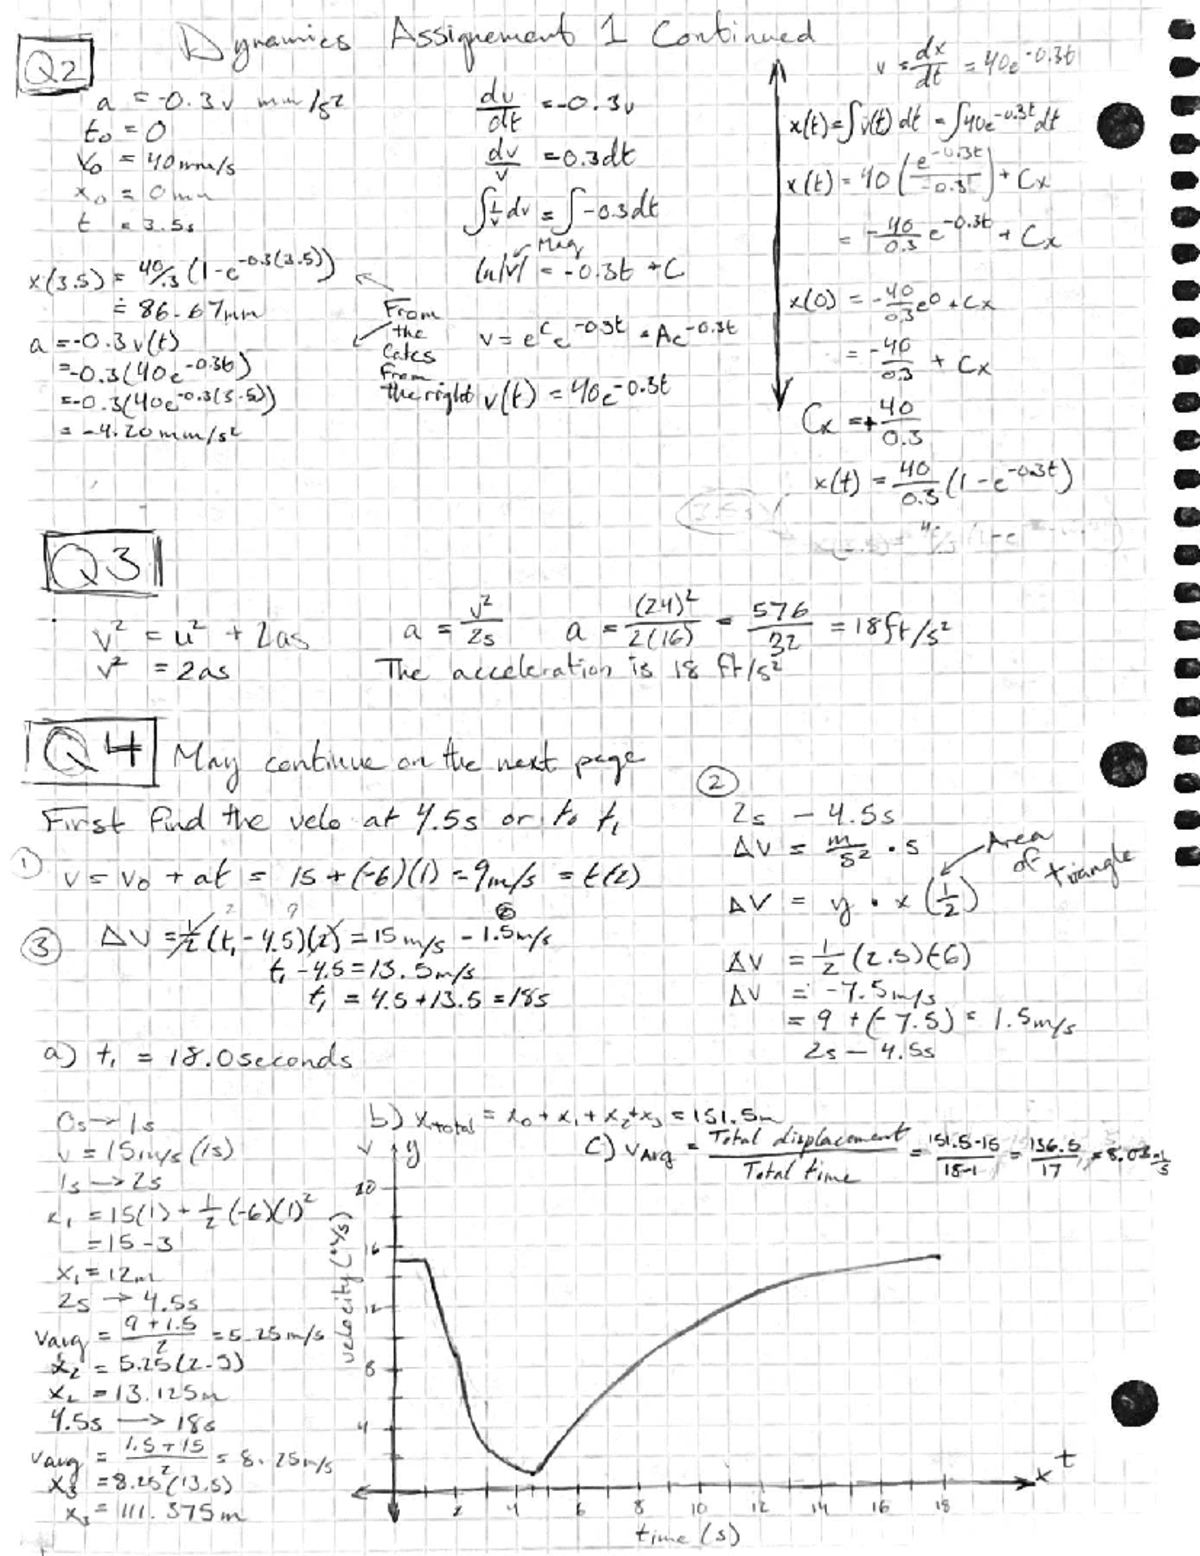 Dynamics Assignement 1 Continued
Q2
a = -0.3v mm/s²
t₀ = 0
V₀ = 40mm/s
x₀ = 0mm
t = 3.5s
x(3.5) = 40/.3 (1-e^-0.3(3.5))
≐ 86.67mm
a = -0.3v(t)
= -0.3(40e^-0.3t)
= -0.3(40e^-0.3(3.5))
= -4.20mm/s²
From
the
Calcs
From
the right
dv/dt = -0.3v
dv/v = 0.3dt
∫1/v dv = ∫-0.3dt
Mag
ln|v| = -0.3t + C
v = e^C e^-0.3t = Ae^-0.3t
v(t) = 40e^-0.3t
v = dx/dt = 40e^-0.3t
x(t) = ∫v(t) dt = ∫40e^-0.3t dt
x(t) = 40(e^-0.3t/-0.3) + Cx
= -40/0.3 e^-0.3t + Cx
x(0) = -40/0.3 e^0 + Cx
= -40/0.3 + Cx
Cx = +40/0.3
x(t) = 40/0.3 (1-e^-0.3t)
Q3
v² = u² + 2as
v² = 2as
a = v²/2s
a = (24)²/2(16) = 576/32 = 18ft/s²
The acceleration is 18 ft/s²
Q4 May continue on the next page
First find the velo at 4.5s or to t₁
① v = v₀ + at = 15 + (-6)(1) = 9m/s = t(2)
③ ΔV = 1/2 (t₁ - 4.5)(2) = 15m/s - 1.5m/s
t₁ - 4.5 = 13.5m/s
t₁ = 4.5 + 13.5 = 18s
a) t₁ = 18.0 seconds
②
2s - 4.5s
ΔV = m/s² · s
Area
of triangle
ΔV = y · x (1/2)
ΔV = 1/2 (2.5)(-6)
ΔV = -7.5m/s
= 9 + (-7.5) = 1.5m/s
2s - 4.5s
0s → 1s
v = 15m/s (1s)
1s → 2s
x₁ = 15(1) + 1/2 (-6)(1)²
= 15 - 3
x₁ = 12m
2s → 4.5s
Vavg = 9+1.5/2 = 5.25m/s
x₂ = 5.25(2.5)
x₂ = 13.125m
4.5s → 18s
Vavg = 1.5+15/2 = 8.25m/s
x₃ = 8.25(13.5)
x₃ = 111.375m
b) Xtotal = x₀ + x₁ + x₂ + x₃ = 151.5m
c) VAvg = Total displacement/Total time = 151.5-15/18-1 = 136.5/17 = 8.03 m/s
v y
velocity (m/s)
16
12
4
2 4 6 8 10 12 14 16 18
x t
time (s)